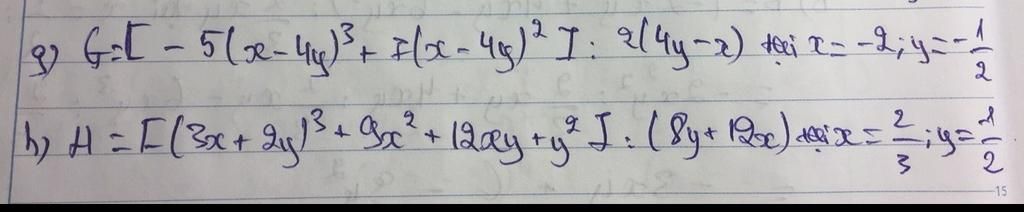 g) G = [ - 5(x - 4y)³ + 7(x - 4y)² ] : 2(4y - x) tại x = -2; y = -1/2
h) H = [(3x + 2y)³ + 9x² + 12xy + y² ] : (8y + 12x) tại x = 2/3; y = 1/2
15